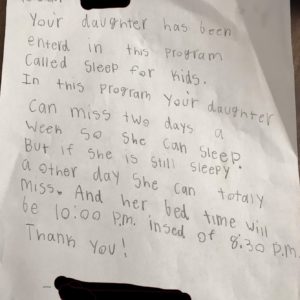 Your daughter has been
enterd in this program
Called Sleep for Kids.
In this program Your daughter
Can miss two days a
Week So She Can Sleep.
But if She is Still Sleepy
a other day She can totaly
Miss. And her bed time will
be 10:00 P.M. insed of 8:30 P.M.
Thank You!